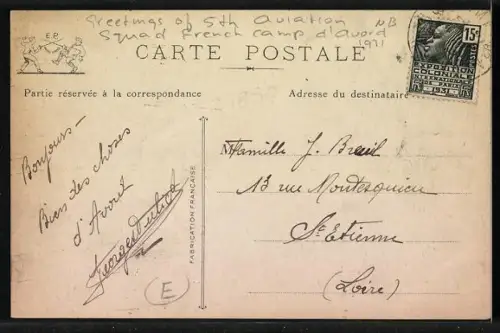 Greetings of 5th Aviation NB
Squad French Camp d'Avord
1931
E.R.
CARTE POSTALE
15c
POSTES
EXPOSITION
COLONIALE
INTERNATIONALE
PARIS
1931
Partie réservée à la correspondance
Adresse du destinataire
Bonjours -
Bien des choses
d'Avord
Georges
FABRICATION FRANÇAISE
E
Famille J. Breuil
13 rue Montesquieu
St Etienne
(Loire)